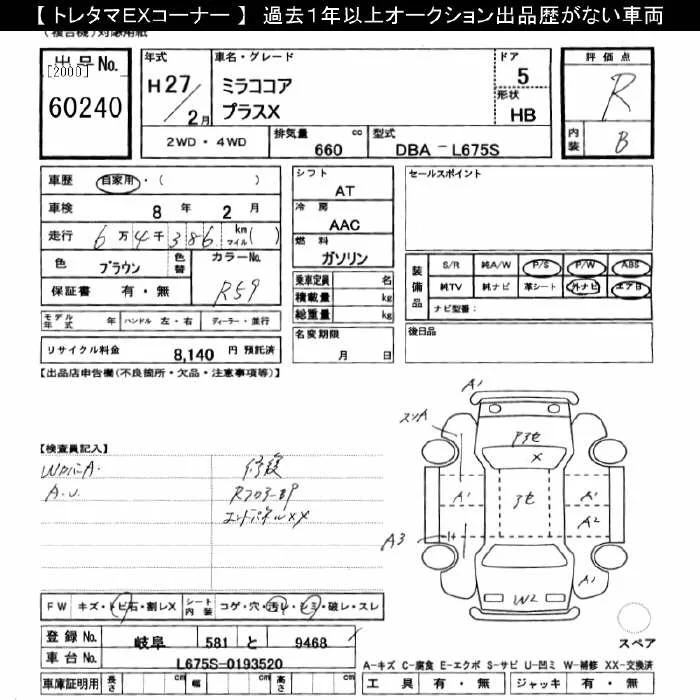 【トレタマEXコーナー】 過去1年以上オークション出品歴がない車両
出品No.
[2000]
60240
年式
H27/2月
車名・グレード
ミラココア
プラスX
ドア
5
形状
HB
評価点
R
内装
B
2WD・4WD
排気量 cc
660
型式
DBA - L675S
車歴 自家用・( )
車検 8 年 2 月
走行 6 万 4 千 386 km マイル( )
色 ブラウン 色替 カラーNo. R59
保証書 有・無
シフト
AT
冷房
AAC
燃料
ガソリン
乗車定員 名
積載量 kg
総重量 kg
名変期限
月 日
セールスポイント
装備品
S/R 純A/W P/S P/W ABS
純TV 純ナビ 革シート 外ナビ エアB
ナビ型番:
後日品
モデル年式 年 ハンドル 左・右 ディーラー・並行
リサイクル料金 8,140 円 預託済
【出品店申告欄(不良箇所・欠品・注意事項等)】
【検査員記入】
A.U.
修復
エンドパネルXX
A1
スリA
A1
A1
A2
A3
A1
W2
スペア
FW キズ・トビ石・割レX シート内装 コゲ・穴・汚レ・シミ・破レ・スレ
登録No. 岐阜 581 と 9468
車台No. L675S-0193520
車庫証明用 長さ cm 幅 cm 高さ cm
A-キズ C-腐食 E-エクボ S-サビ U-凹ミ W-補修 XX-交換済
工具 有・無 ジャッキ 有・無